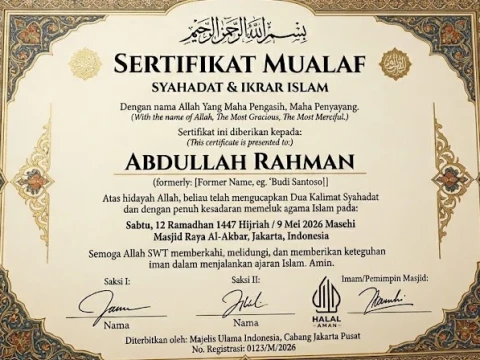 بسم الله الرحمن الرحيم
SERTIFIKAT MUALAF
SYAHADAT & IKRAR ISLAM
Dengan nama Allah Yang Maha Pengasih, Maha Penyayang.
(With the name of Allah, The Most Gracious, The Most Merciful.)
Sertifikat ini diberikan kepada:
(This certificate is presented to:)
ABDULLAH RAHMAN
(formerly: [Former Name, eg. "Budi Santoso]]
Atas hidayah Allah, beliau telah mengucapkan Dua Kalimat Syahadat
dan dengan penuh kesadaran memeluk agama Islam pada:
Sabtu, 12 Ramadhan 1447 Hijriah / 9 Mei 2026 Masehi
Masjid Raya Al-Akbar, Jakarta, Indonesia
Semoga Allah SWT memberkahi, melidungi, dan memberikan keteguhan
iman dalam menjalankan ajaran Islam. Amin.
Saksi I:
Nama
Saksi II:
Nama
HALAL
AMAN
Imam/Pemimpin Masjid:
Diterbitkan oleh: Majelis Ulama Indonesia, Cabang Jakarta Pusat
No. Registrasi: 0123/M/2026